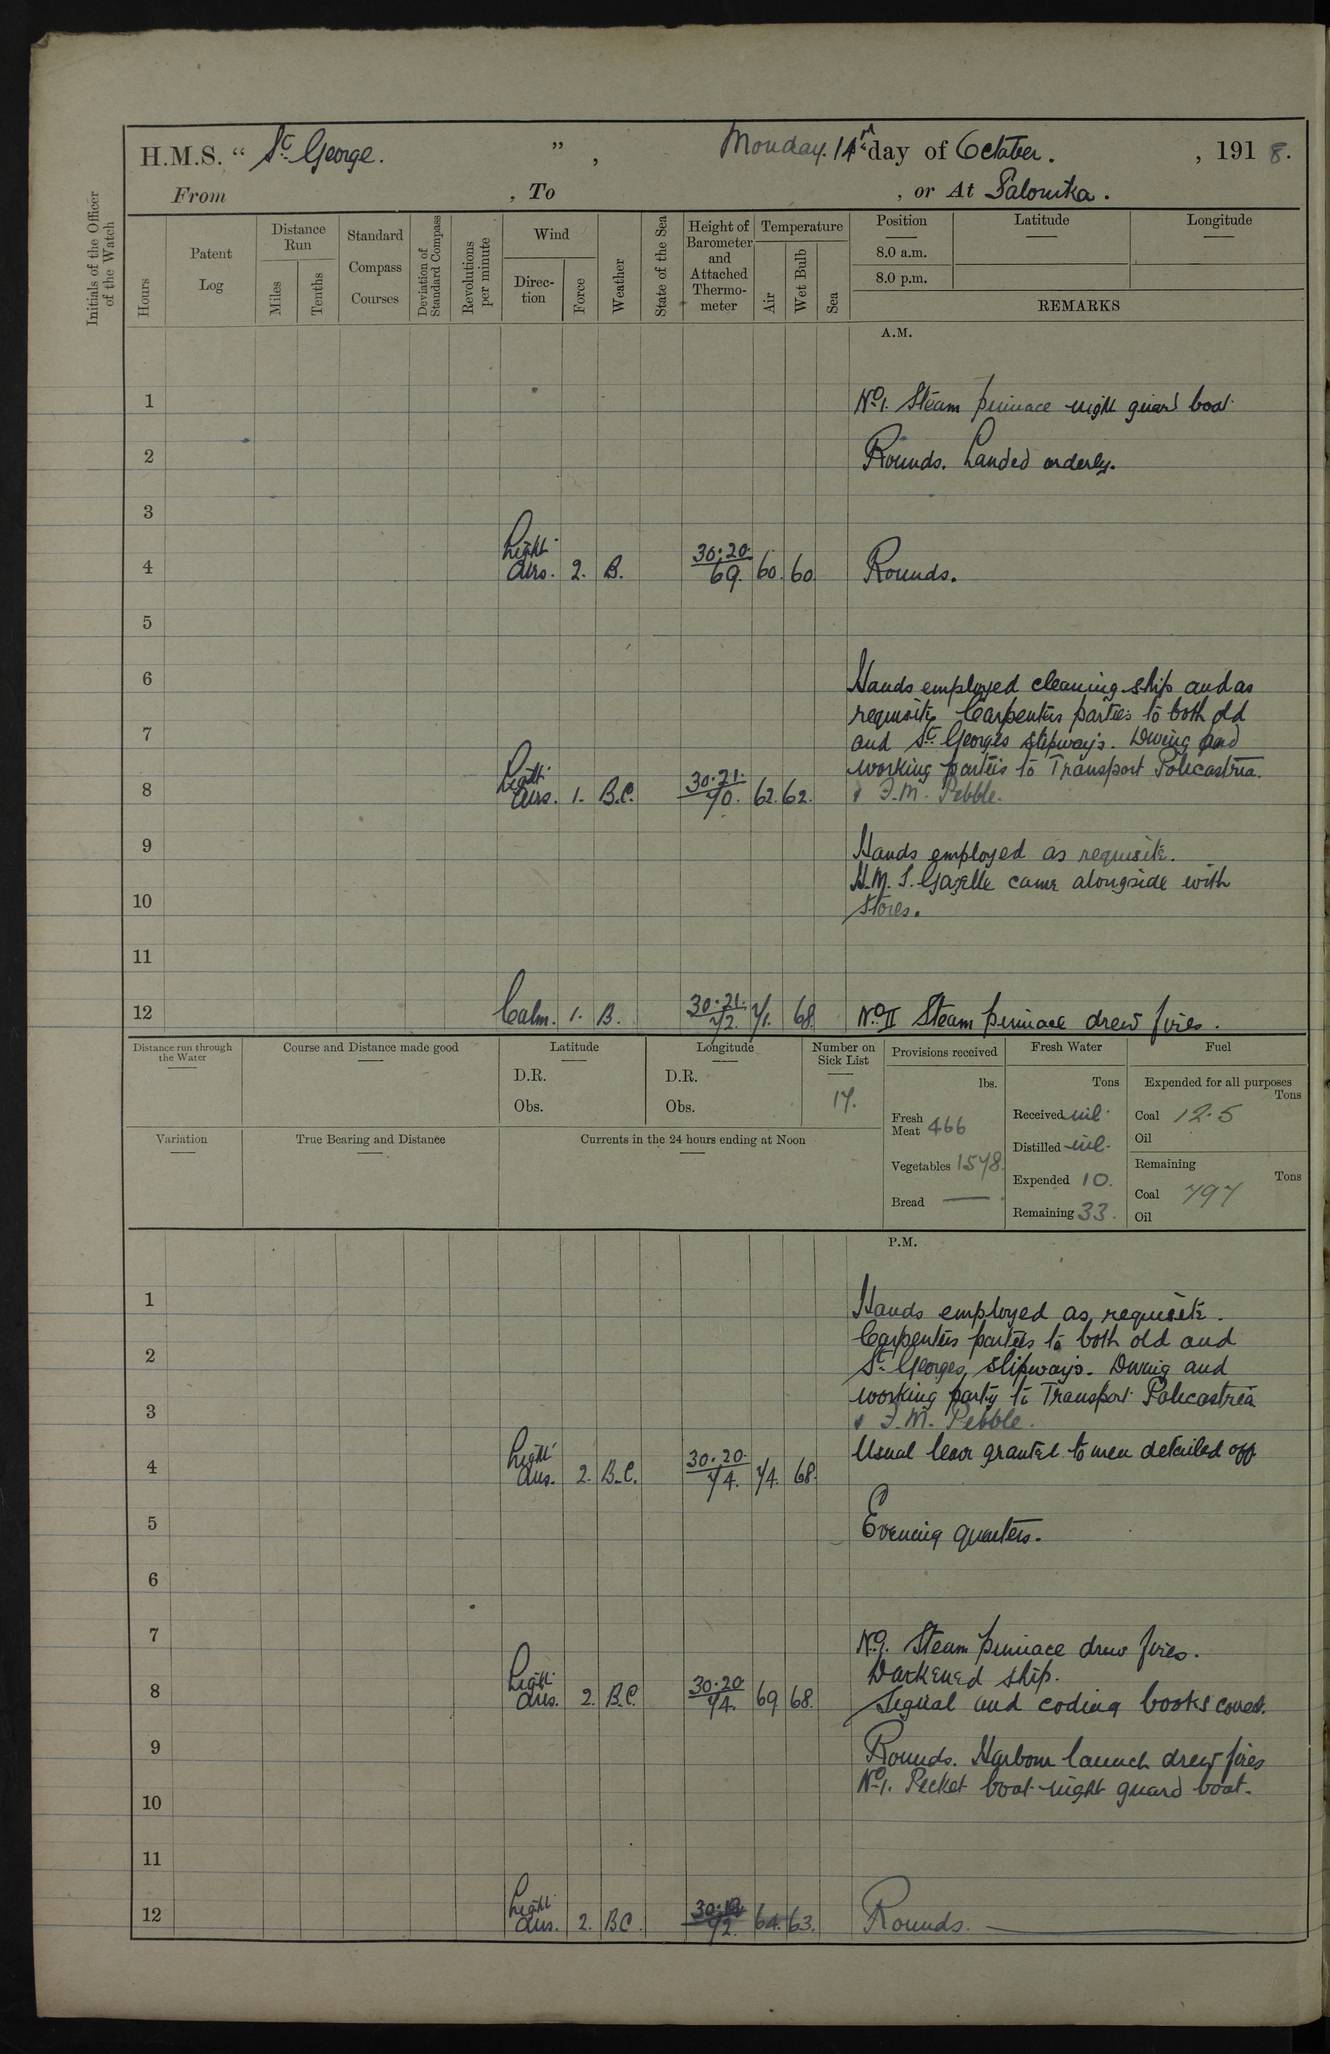 H.M.S. “ St George. ” , Monday. 14 day of October. , 1918.
From , To , or At Salonika.
Initials of the Officer of the Watch
Hours
Patent Log
Distance Run
Miles
Tenths
Standard Compass Courses
Deviation of Standard Compass
Revolutions per minute
Wind
Direction
Force
Weather
State of the Sea
Height of Barometer and Attached Thermometer
Temperature
Air
Wet Bulb
Sea
Position
8.0 a.m.
8.0 p.m.
Latitude
Longitude
REMARKS
A.M.
1 No 1. Steam pinnace night guard boat.
2 Rounds. Landed orderly.
3
4 Light airs. 2. B. 30.20. 69. 60. 60 Rounds.
5
6 Hands employed cleaning ship and as
requisite Carpenters parties to both old
7 and St. Georges slipways. Diving and
working parties to Transport Policastria.
8 Light airs. 1. B.C. 30.21. 70. 62. 62. & F.M. Pebble.
9 Hands employed as requisite.
H.M.S. Gazelle came alongside with
10 stores.
11
12 Calm. 1. B. 30.21. 72. 71. 68. No II Steam pinnace drew fires.
Distance run through the Water
Course and Distance made good
Latitude
D.R.
Obs.
Longitude
D.R.
Obs.
Number on Sick List
17.
Provisions received
lbs.
Fresh Meat 466
Vegetables 1578.
Bread —
Fresh Water
Tons
Received nil.
Distilled nil.
Expended 10.
Remaining 33.
Fuel
Expended for all purposes
Tons
Coal 12.5
Oil
Remaining
Tons
Coal 797
Oil
Variation
True Bearing and Distance
Currents in the 24 hours ending at Noon
P.M.
1 Hands employed as requisite.
Carpenters parties to both old and
2 St. Georges slipways. Diving and
working party to Transport Policastria
3 & F.M. Pebble.
4 Light airs. 2. B.C. 30.20. 74. 74. 68. Usual leave granted to men detailed off
5 Evening quarters.
6
7 No 1. Steam pinnace drew fires.
Darkened ship.
8 Light airs. 2. B.C. 30.20 74. 69 68. Signal and coding books correct.
9 Rounds. Harbour launch drew fires
No 1. Picket boat night guard boat.
10
11
12 Light airs. 2. BC. 72. 64. 63. Rounds.